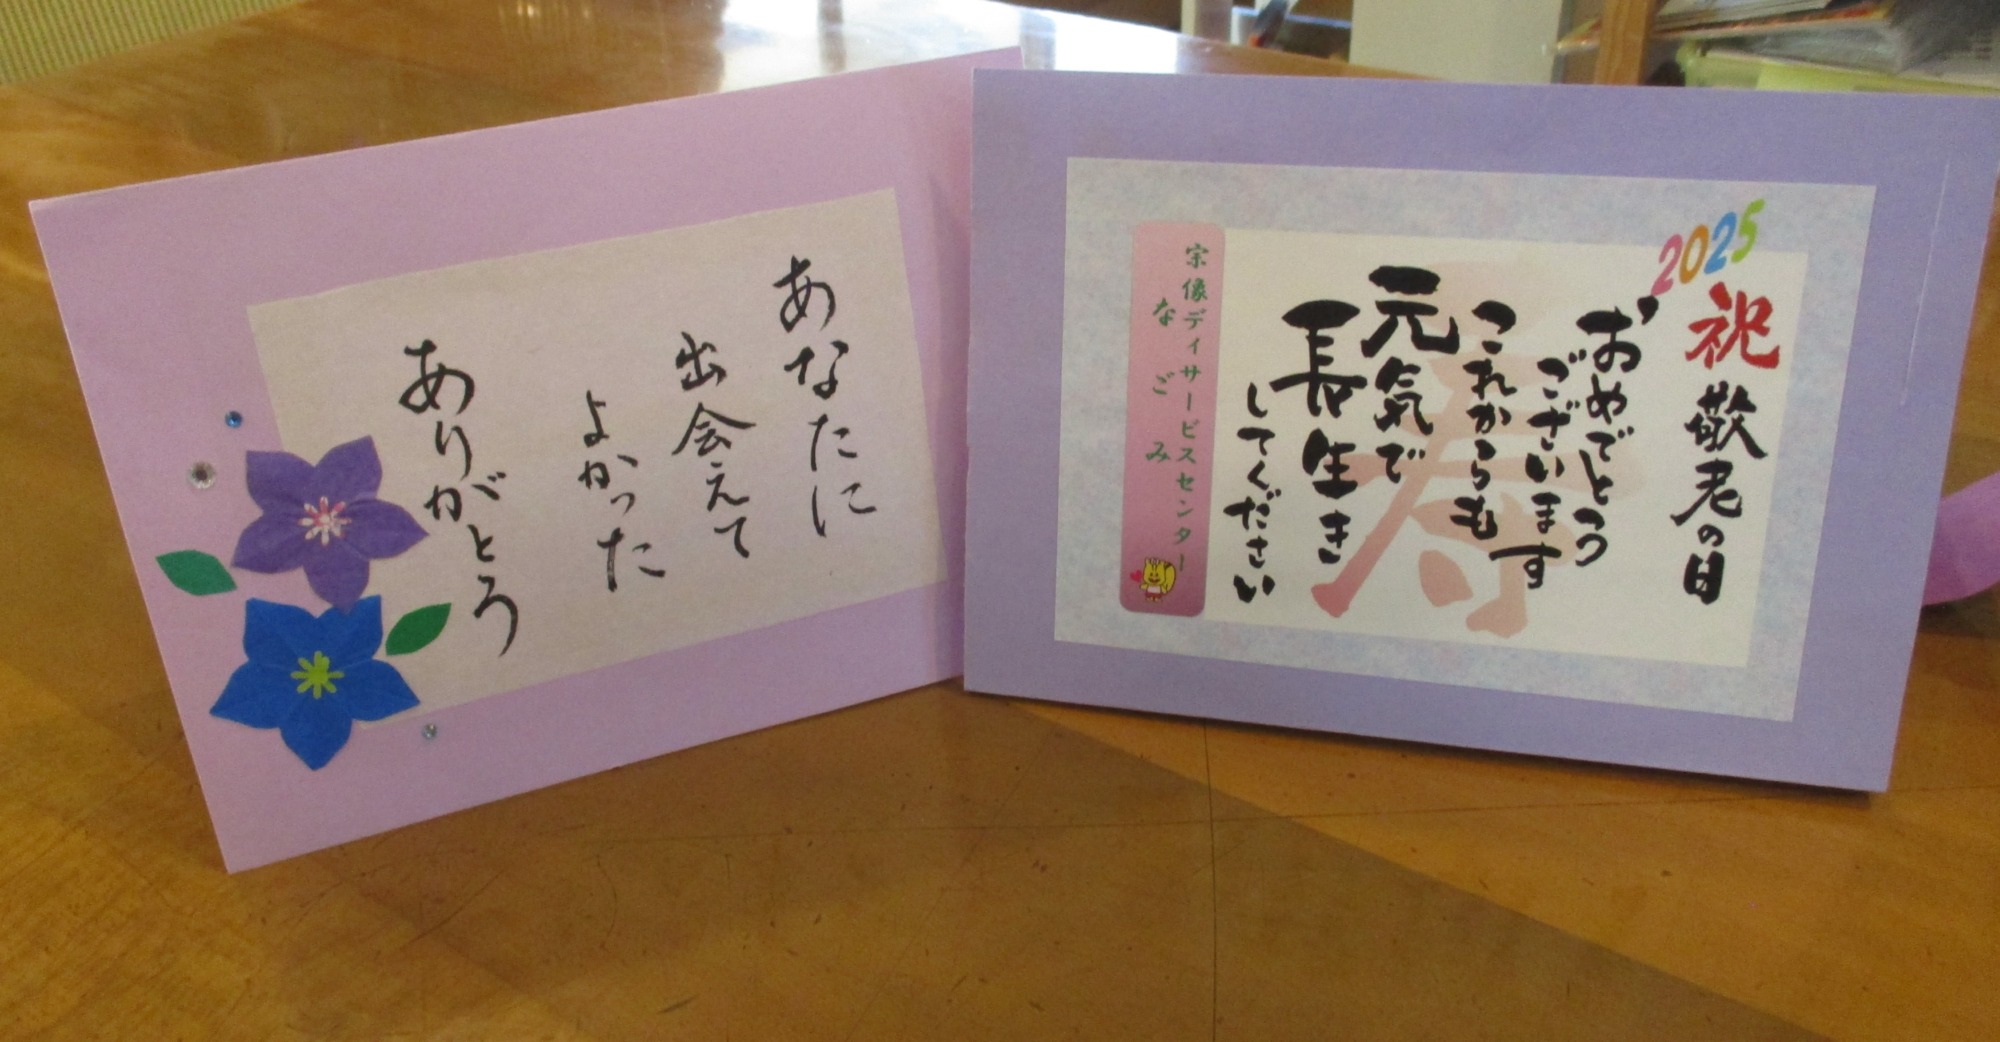 あなたに
出会えて
よかった
ありがとう
2025
祝 敬老の日
おめでとう
ございます
これからも
元気で
長生き
してください
寿
宗像デイサービスセンター
なごみ